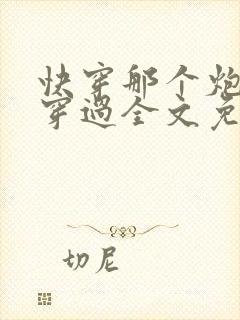 快穿那个炮
穿过全文免
切尼